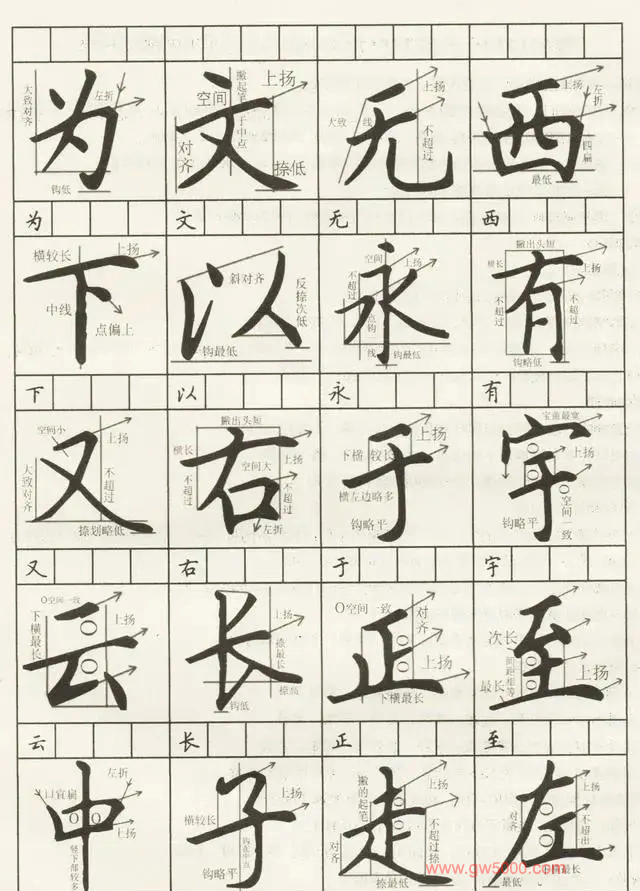 大致对齐
左折
为
钩低
空间
撇起笔于中点
上扬
文
对齐
捺低
大致一线
无
不超过
上扬
左折
西
四扁
最低
为
文
无
西
横较长
上扬
下
中线
点偏上
斜对齐
以
反捺次低
钩最低
空间
上扬
不超过
永
点钩一线
钩最低
撇出头短
横长
上扬
有
不超过
不超过
钩略低
下
以
永
有
空间小
上扬
又
大致对齐
不超过
捺划略低
撇出头短
横长
上扬
空间大
右
不超过
不超过
左折
上扬
下横较长
于
横左边略多
钩略平
宝盖最宽
上扬
宇
空间一致
钩略平
又
右
于
宇
O空间一致
下横最长
上扬
云
上扬
长
捺最长
捺高
钩低
O空间一致
对齐
正
上扬
下横最长
次长
至
间距相等
最长
上扬
云
长
正
至
左折
口宜扁
中
上扬
竖下部较多
横较长
上扬
子
钩在中点
钩略平
撇的起笔
走
对齐
不超过捺
捺最低
上扬
左
对齐
不超出
最低
横最长
www.gw5000.com